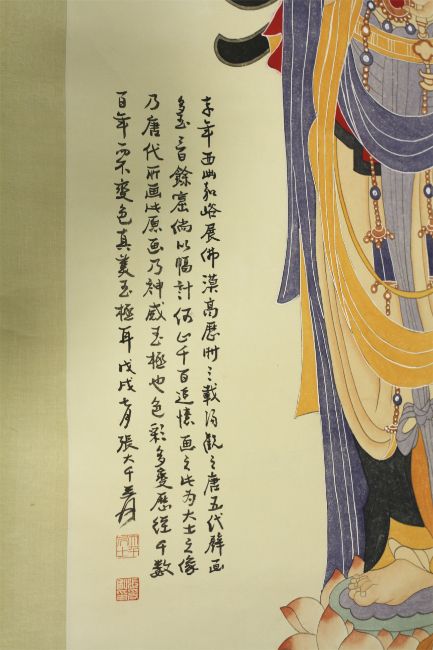 年西出嘉峪展佛漠高歷時三載得觀之唐五代壁畫
多至三百餘窟倘以幅計何止千百追憶画之此为大士之像
乃唐代所画此原画乃神威至極也色彩多變歷经千数
百年而不變色真美至極耳戊戌七月張大千